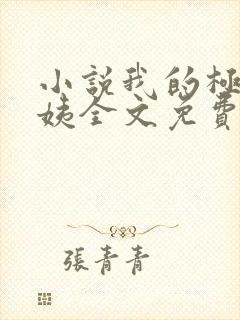 小說我的極
姨全文免費
張青青